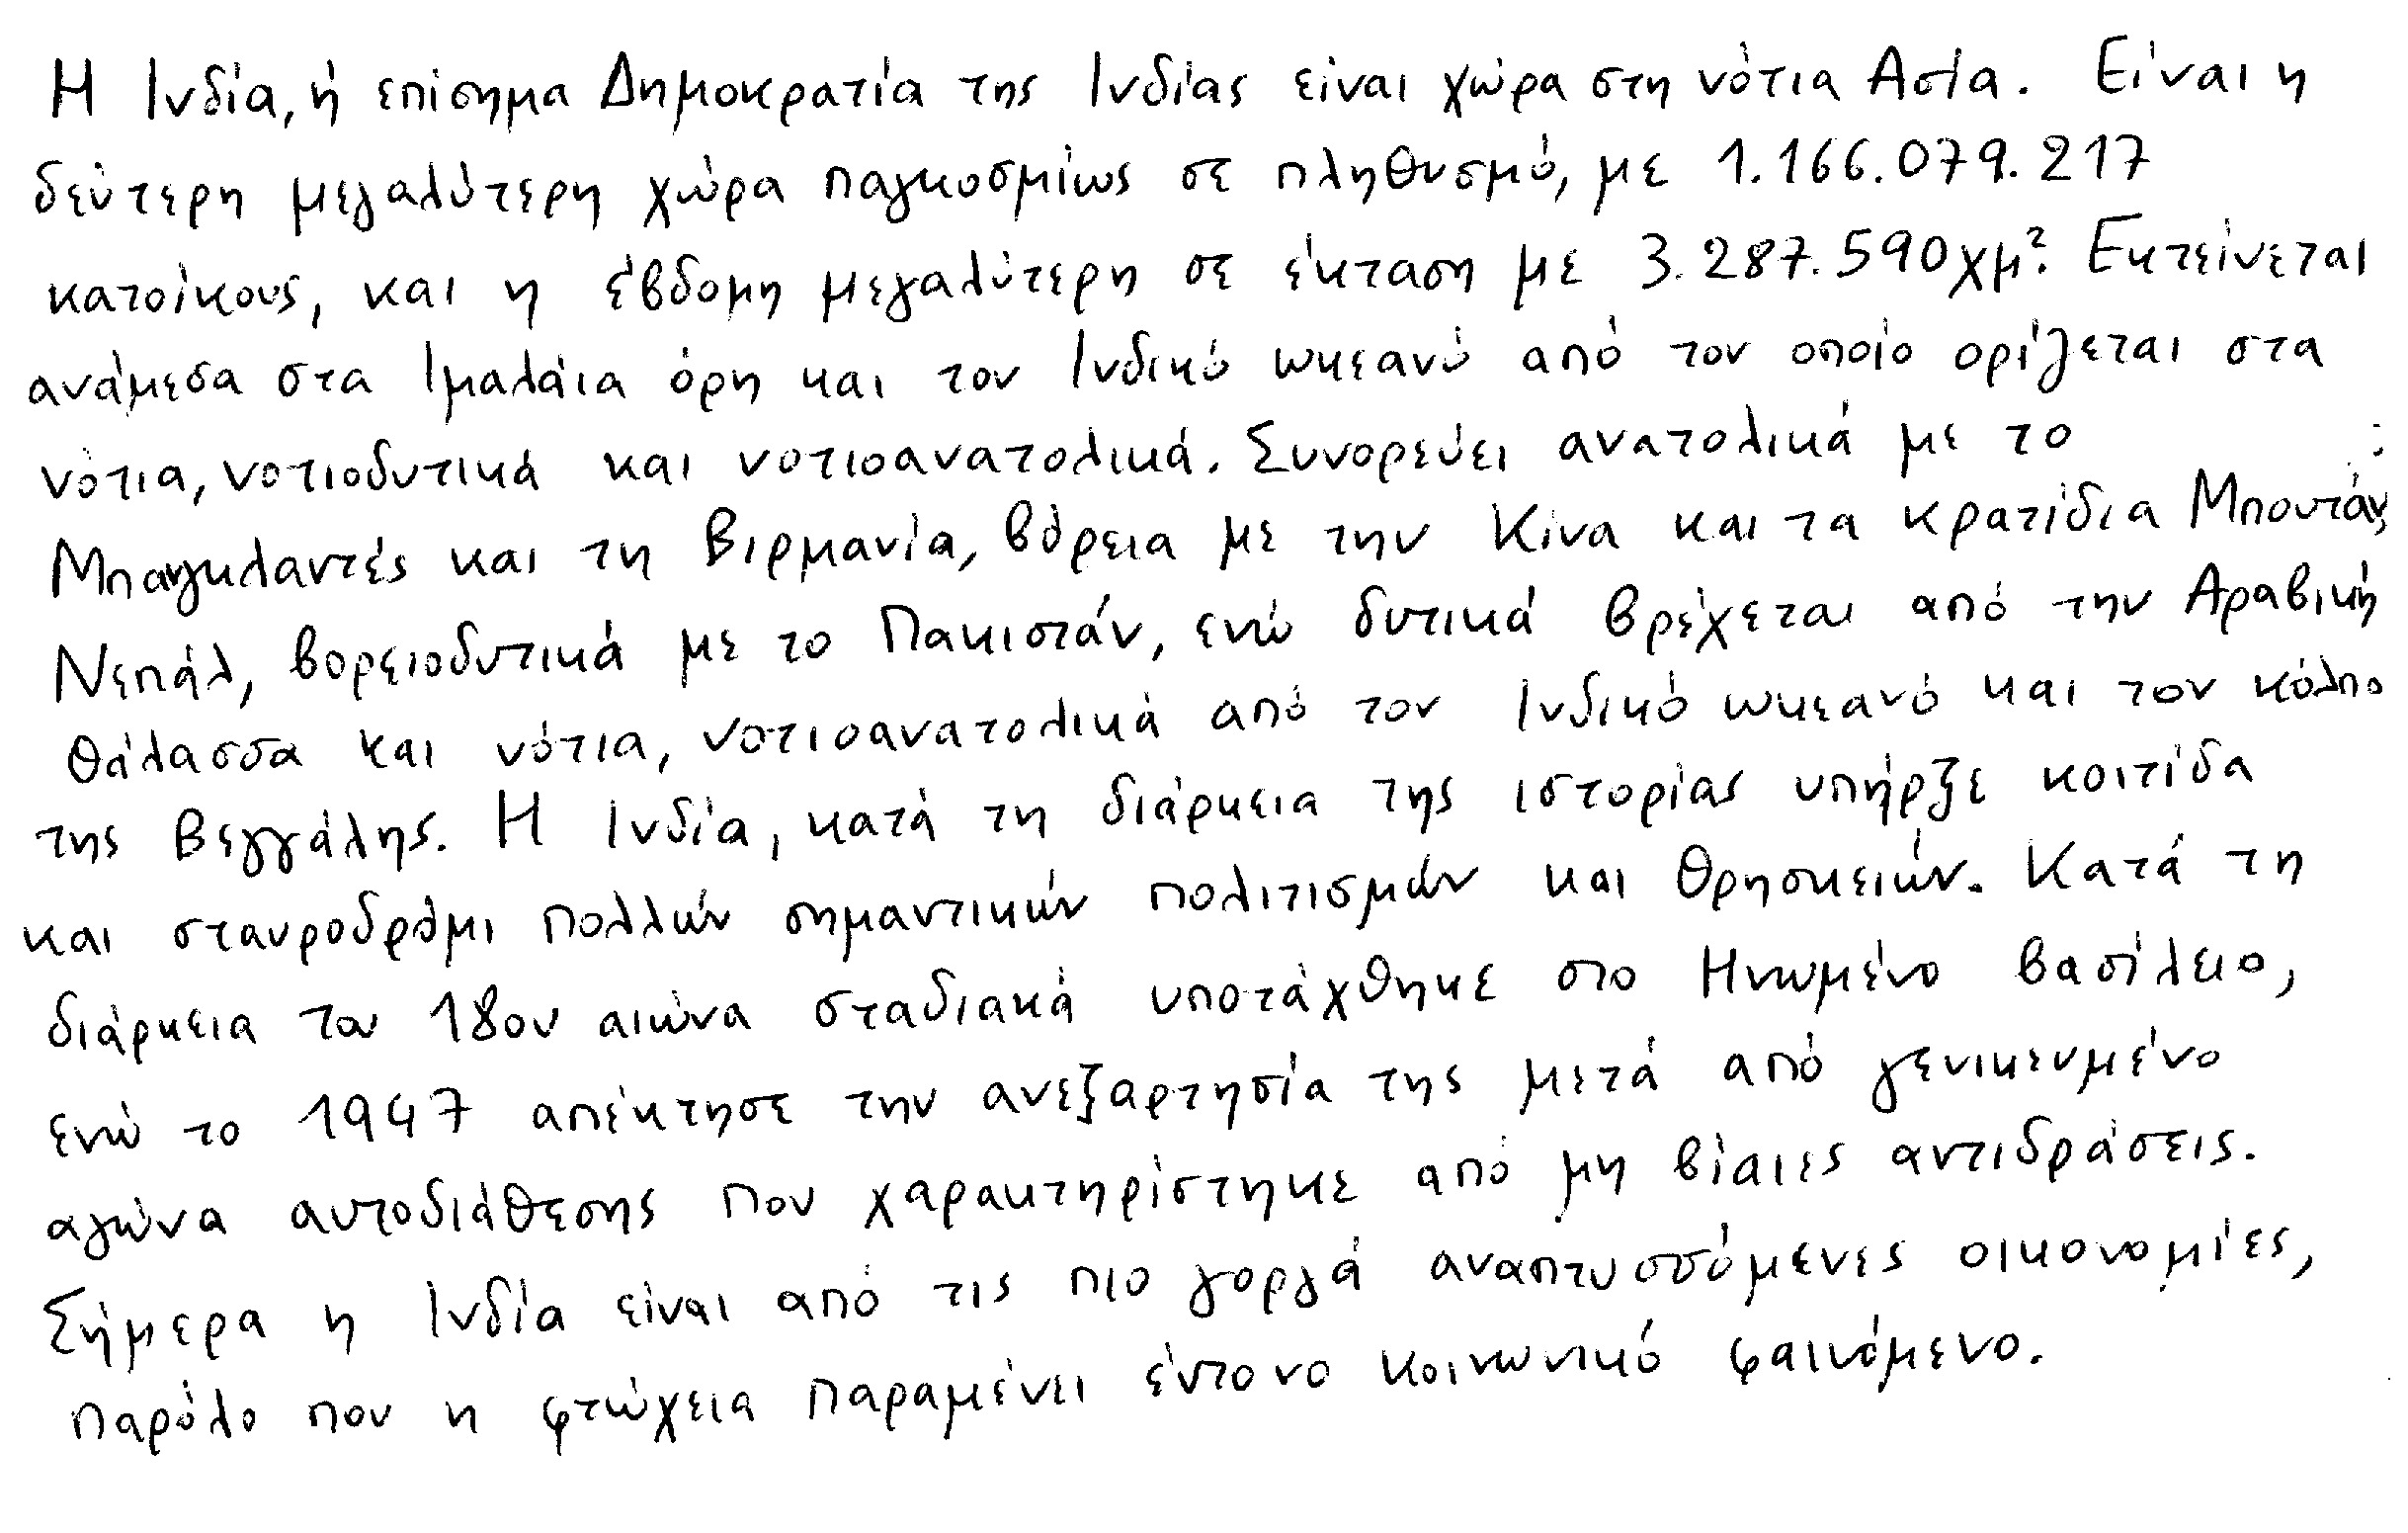 Η Ινδία, ή επίσημα Δημοκρατία της Ινδίας είναι χώρα στη νότια Ασία. Είναι η
δεύτερη μεγαλύτερη χώρα παγκοσμίως σε πληθυσμό, με 1.166.079.217
κατοίκους, και η έβδομη μεγαλύτερη σε έκταση με 3.287.590χμ². Εκτείνεται
ανάμεσα στα Ιμαλάια όρη και τον Ινδικό ωκεανό από τον οποίο ορίζεται στα
νότια, νοτιοδυτικά και νοτιοανατολικά. Συνορεύει ανατολικά με το
Μπαγκλαντές και τη Βιρμανία, βόρεια με την Κίνα και τα κρατίδια Μπουτάν,
Νεπάλ, βορειοδυτικά με το Πακιστάν, ενώ δυτικά βρέχεται από την Αραβική
θάλασσα και νότια, νοτιοανατολικά από τον Ινδικό ωκεανό και τον κόλπο
της Βεγγάλης. Η Ινδία, κατά τη διάρκεια της ιστορίας υπήρξε κοιτίδα
και σταυροδρόμι πολλών σημαντικών πολιτισμών και θρησκειών. Κατά τη
διάρκεια του 18ου αιώνα σταδιακά υποτάχθηκε στο Ηνωμένο Βασίλειο,
ενώ το 1947 απέκτησε την ανεξαρτησία της μετά από γενικευμένο
αγώνα αυτοδιάθεσης που χαρακτηρίστηκε από μη βίαιες αντιδράσεις.
Σήμερα η Ινδία είναι από τις πιο γοργά αναπτυσσόμενες οικονομίες,
παρόλο που η φτώχεια παραμένει έντονο κοινωνικό φαινόμενο.